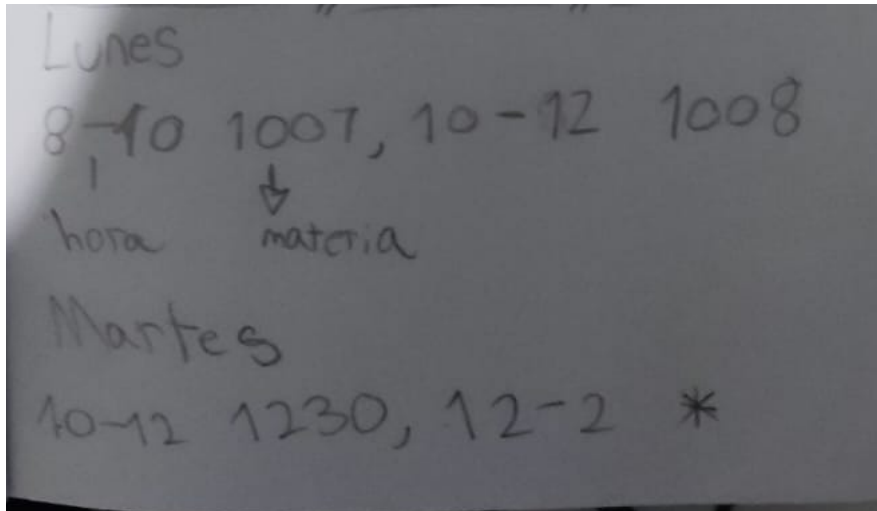 Lunes
8-10 1007, 10-12 1008
hora materia
Martes
10-12 1230, 12-2 *